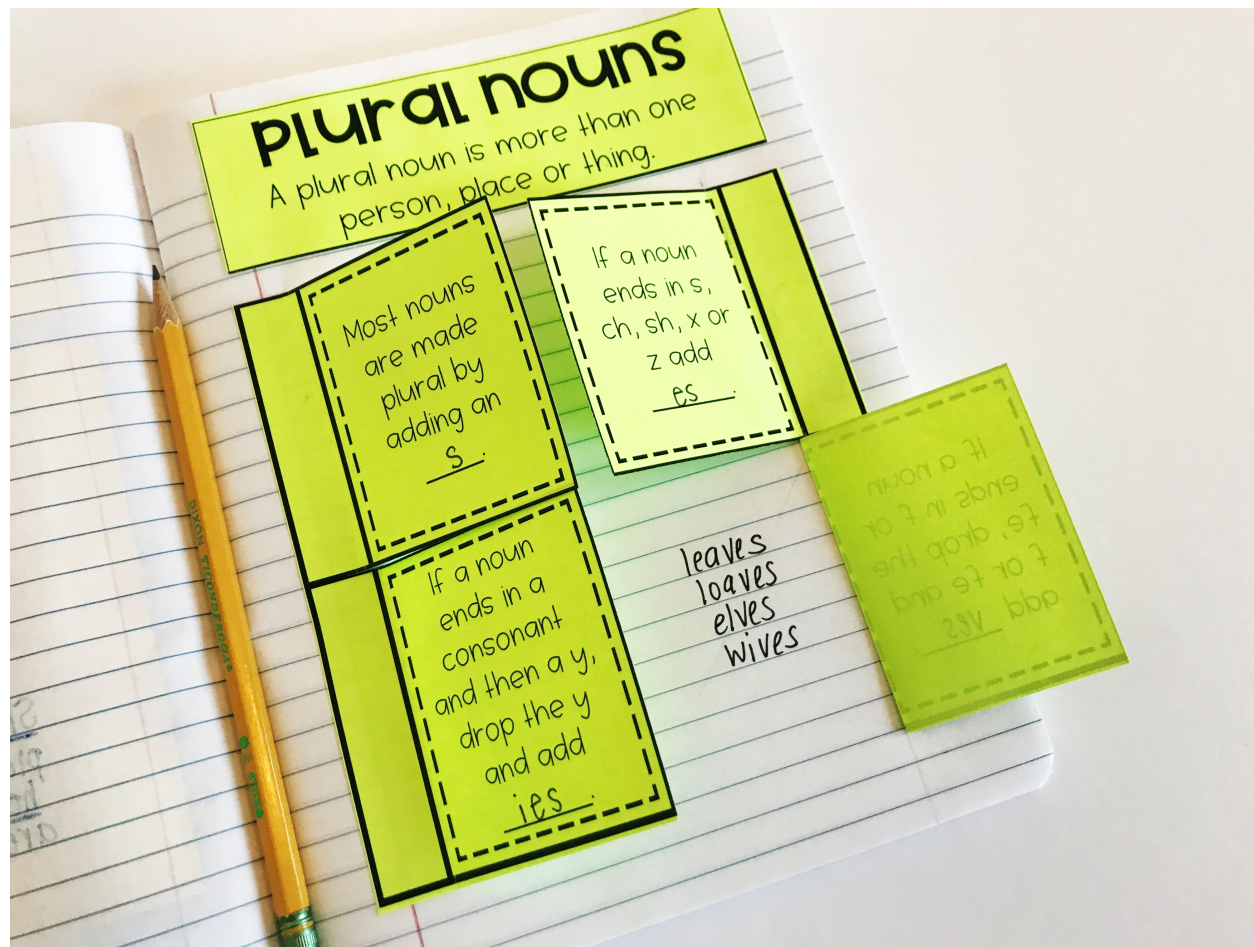 plural nouns
A plural noun is more than one
person, place or thing.
Most nouns
are made
plural by
adding an
s.
If a noun
ends in s,
ch, sh, x or
z add
es.
If a noun
ends in a
consonant
and then a y,
drop the y
and add
ies.
leaves
loaves
elves
wives
If a noun
ends in f or
fe, drop the
f or fe and
add ves
DIXON TICONDEROGA